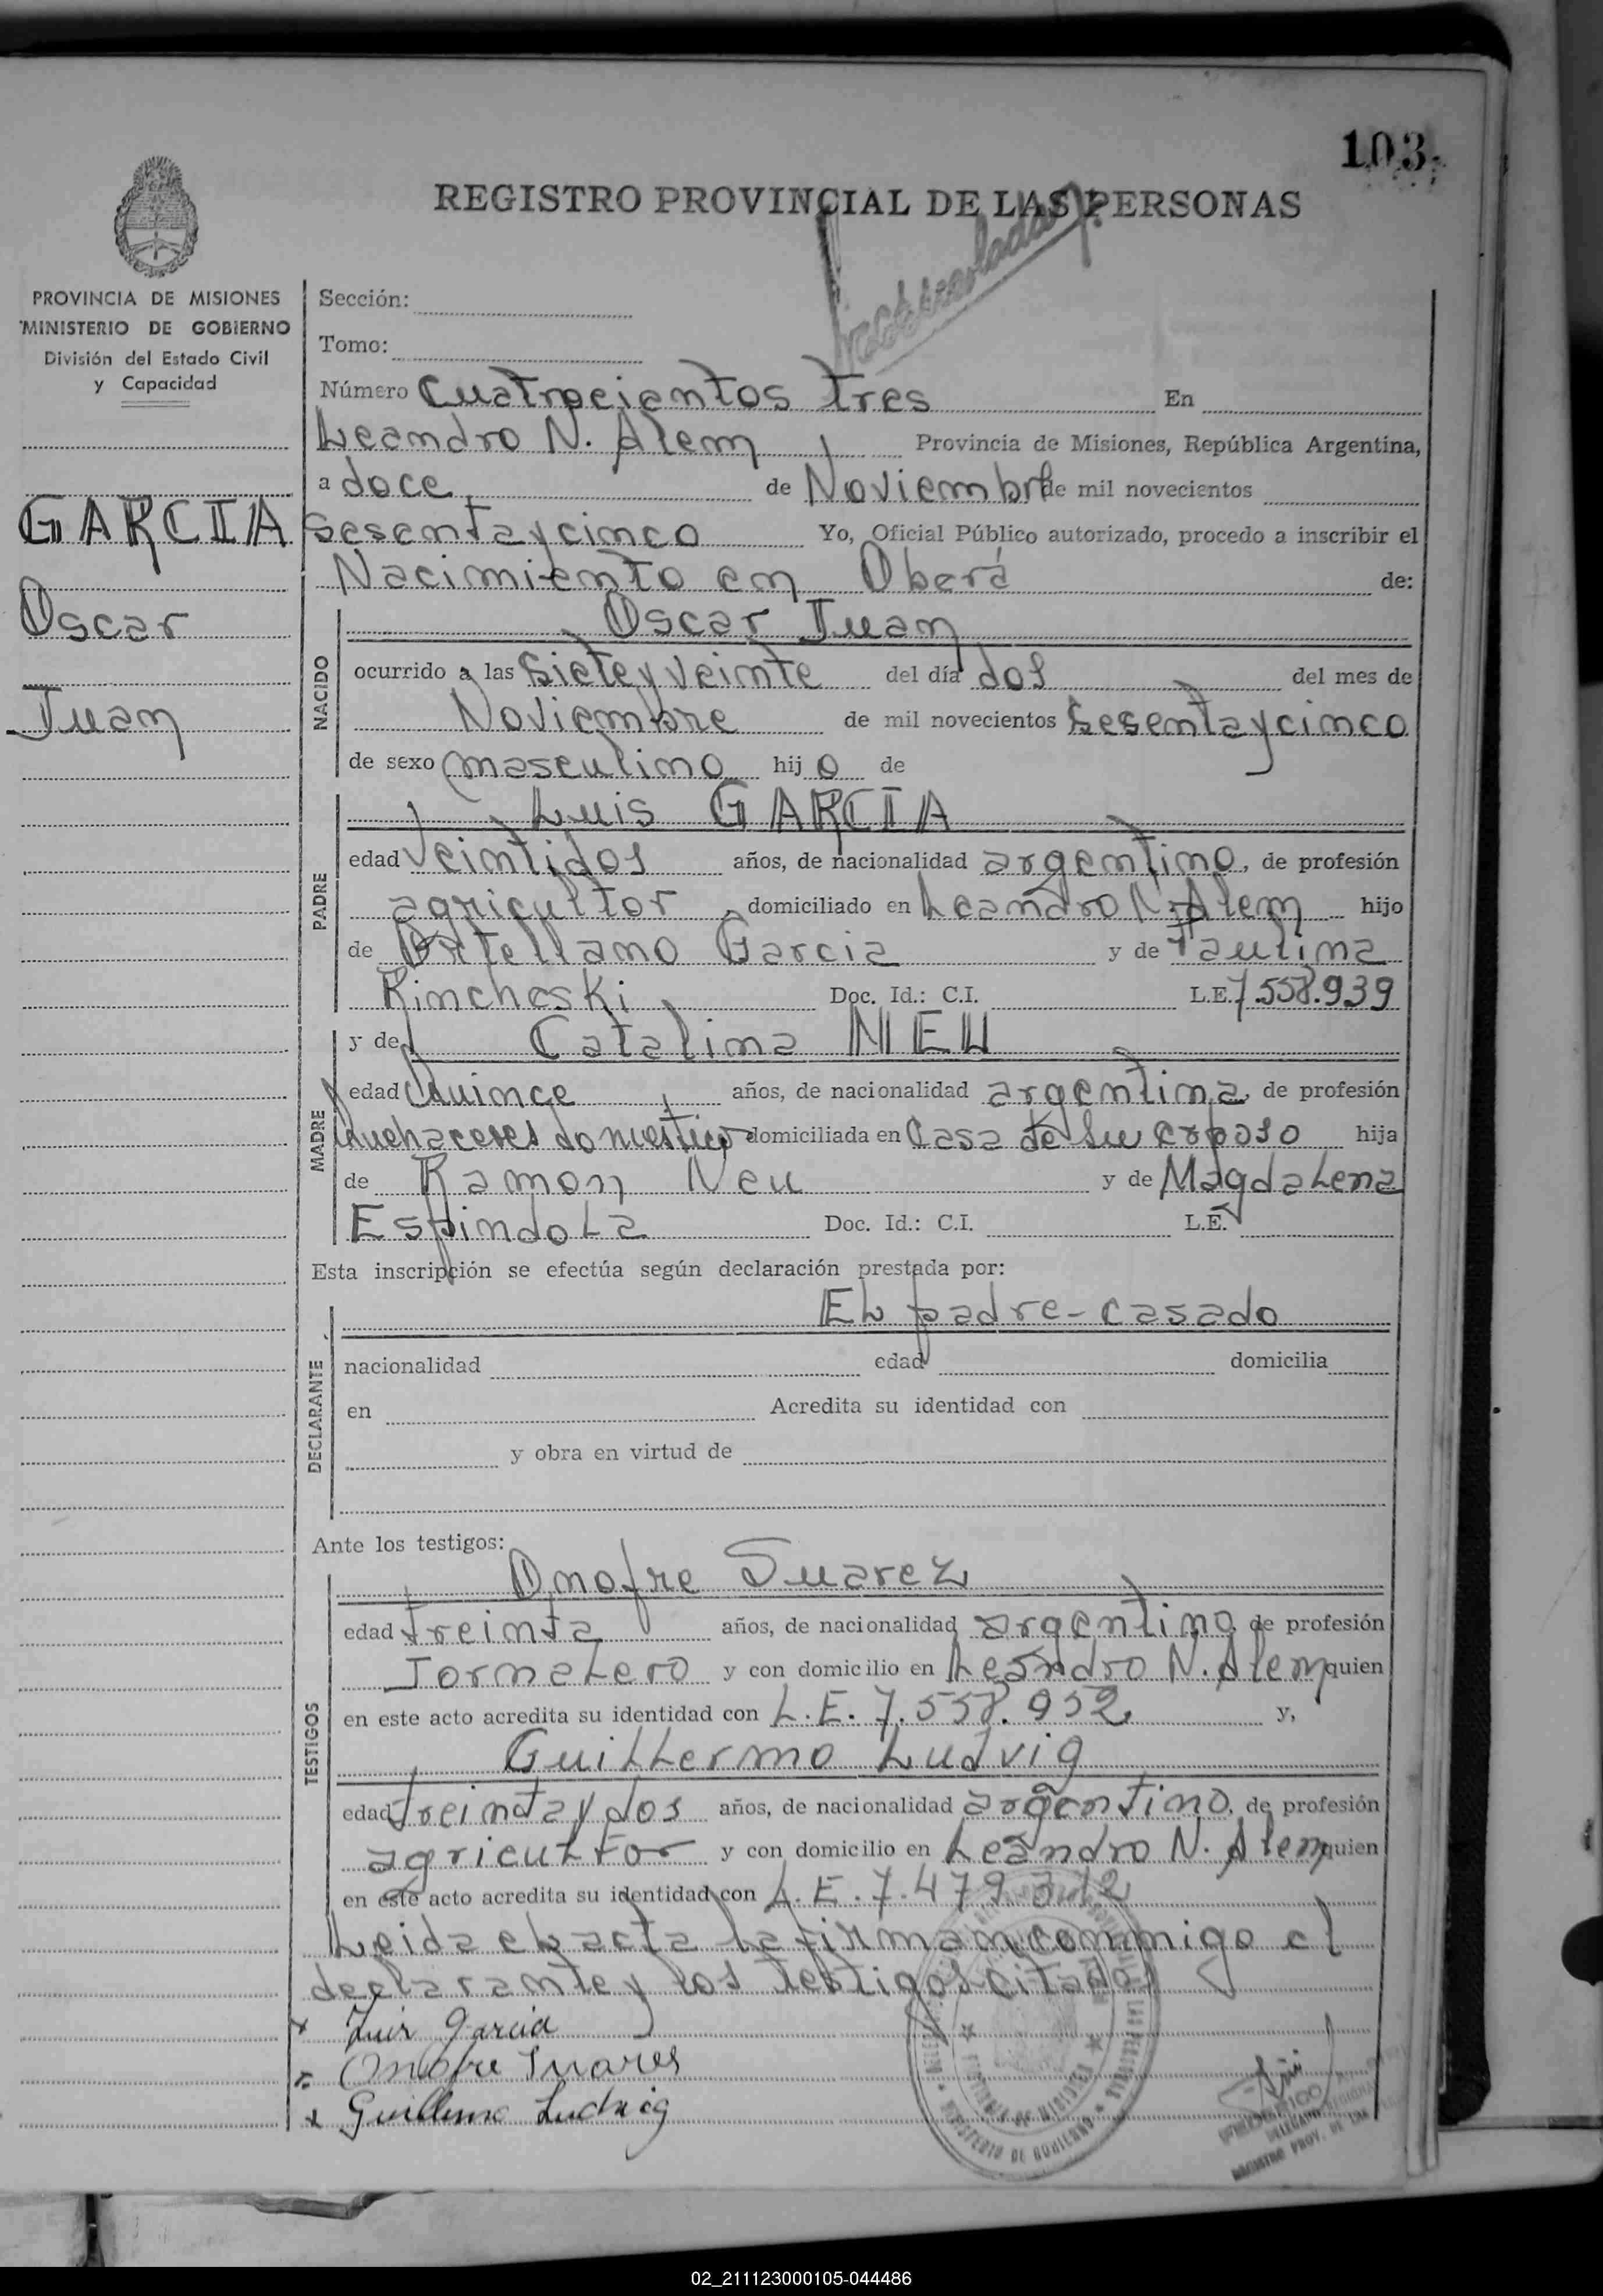 103
REGISTRO PROVINCIAL DE LAS PERSONAS
PROVINCIA DE MISIONES
MINISTERIO DE GOBIERNO
División del Estado Civil
y Capacidad
GARCIA
Oscar
Juan
Sección:
Tomo:
Número Cuatrocientos tres En
Leandro N. Alem Provincia de Misiones, República Argentina,
a doce de Noviembre de mil novecientos
sesentaycinco Yo, Oficial Público autorizado, procedo a inscribir el
Nacimiento en Oberá de:
NACIDO
Oscar Juan
ocurrido a las Sieteyveinte del día dos del mes de
Noviembre de mil novecientos sesentaycinco
de sexo masculino hijo de
PADRE
Luis GARCIA
edad Veintidos años, de nacionalidad argentino, de profesión
agricultor domiciliado en Leandro N. Alem hijo
de Garcia y de Paulina
Rincheski Doc. Id.: C.I. L.E. 7.558.939
MADRE
y de Catalina NEU
edad Quince años, de nacionalidad argentina, de profesión
Quehaceres domiciliada en Casa de su esposo hija
de Ramon Neu y de Magdalena
Espindola Doc. Id.: C.I. L.E.
Esta inscripción se efectúa según declaración prestada por:
DECLARANTE
El padre-casado
nacionalidad edad domicilia
en Acredita su identidad con
y obra en virtud de
Ante los testigos:
TESTIGOS
Onofre Suarez
edad treinta años, de nacionalidad argentino, de profesión
Jornalero y con domicilio en Leandro N. Alem quien
en este acto acredita su identidad con L.E. 7.558.952 y,
Guillermo Ludvig
edad treintaydos años, de nacionalidad argentino, de profesión
agricultor y con domicilio en Leandro N. Alem quien
en este acto acredita su identidad con L.E. 7.479.312
Leida el acta la firman conmigo el
declarante y los testigos citados
x Luis Garcia
Onofre Suares
x Guillermo Ludvig
MINISTERIO DE GOBIERNO
02_211123000105-044486